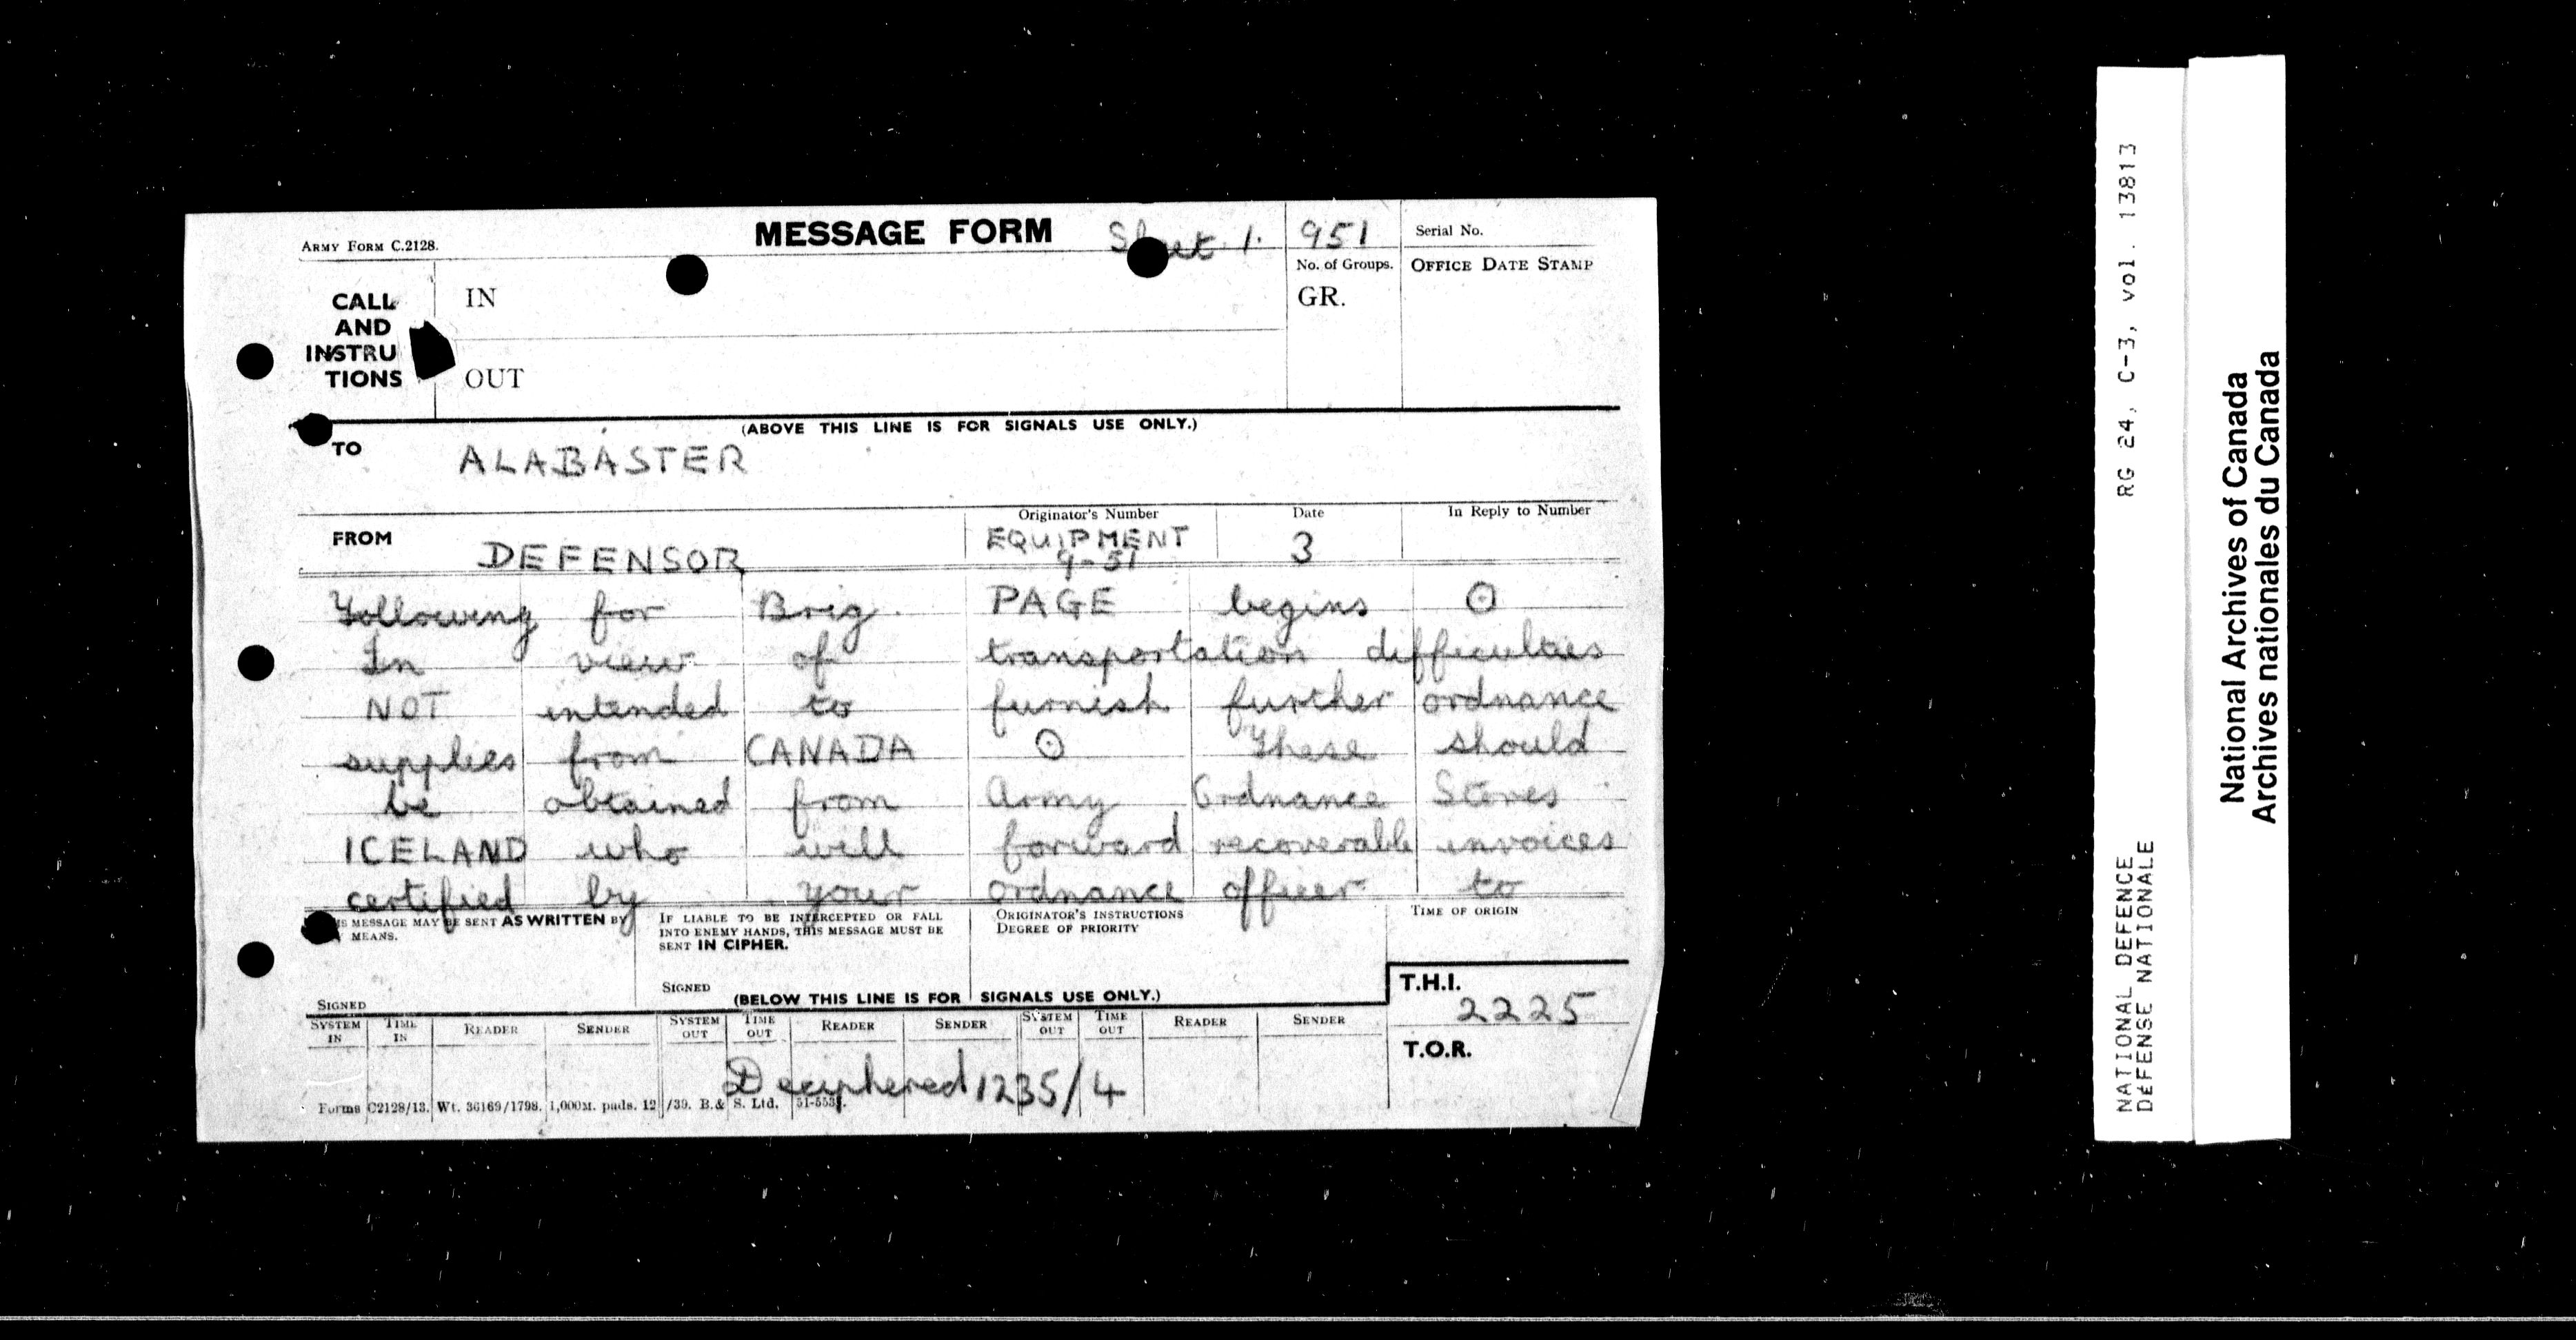 ARMY FORM C.2128.
MESSAGE FORM
Sheet 1.
951
Serial No.
No. of Groups.
OFFICE DATE STAMP
CALL AND INSTRU TIONS
IN
GR.
OUT
(ABOVE THIS LINE IS FOR SIGNALS USE ONLY.)
TO ALABASTER
Originator's Number
Date
In Reply to Number
FROM DEFENSOR
EQUIPMENT 9-51
3
Following for Brig. PAGE begins ⊙
In view of transportation difficulties
NOT intended to furnish further ordnance
supplies from CANADA ⊙ These should
be obtained from Army Ordnance Stores
ICELAND who will forward recoverable invoices
certified by your ordnance officer to
IS MESSAGE MAY BE SENT AS WRITTEN BY
MEANS.
SIGNED
IF LIABLE TO BE INTERCEPTED OR FALL
INTO ENEMY HANDS, THIS MESSAGE MUST BE
SENT IN CIPHER.
SIGNED
ORIGINATOR'S INSTRUCTIONS
DEGREE OF PRIORITY
TIME OF ORIGIN
(BELOW THIS LINE IS FOR SIGNALS USE ONLY.)
T.H.I. 2225
SYSTEM IN TIME IN READER SENDER SYSTEM OUT TIME OUT READER SENDER SYSTEM OUT TIME OUT READER SENDER
T.O.R.
Deciphered 1235/4
Forms C2128/13. Wt. 36169/1798. 1,000M. pads. 12/39. B.& S. Ltd.
RG 24, C-3, vol. 13813
NATIONAL DEFENCE
DEFENSE NATIONALE
National Archives of Canada
Archives nationales du Canada